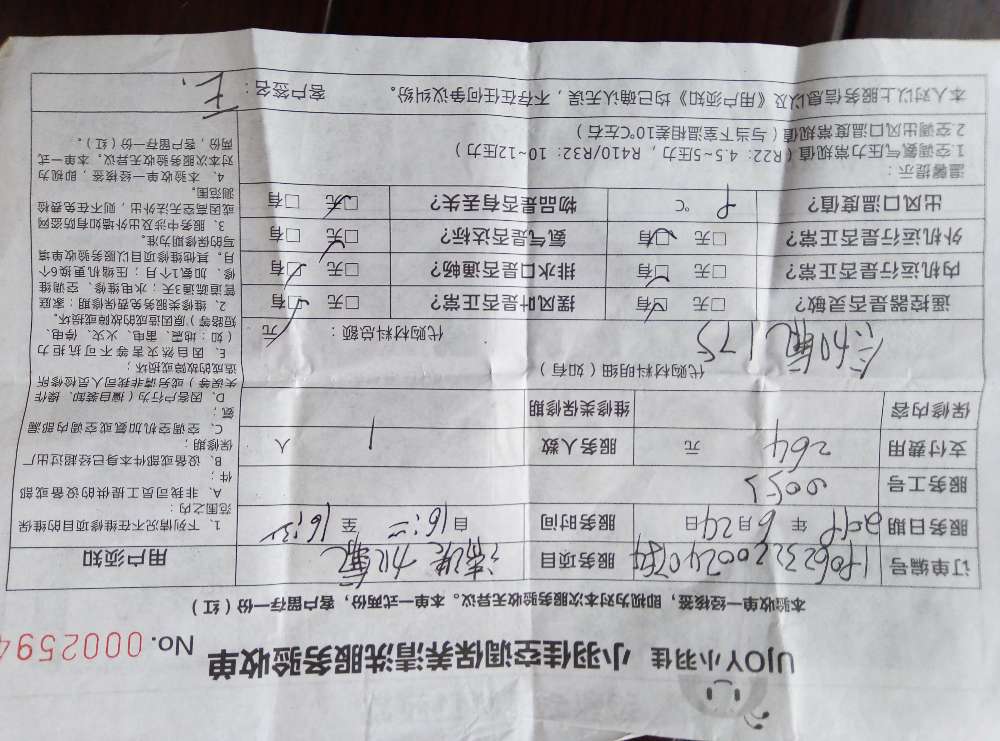 UJOY小羽佳 小羽佳空调保养清洗服务验收单 No. 0002594
本验收单一经核签，即视为对本次服务验收无异议。本单一式两份，客户留存一份（红）
订单编号 服务项目 清洗加氟 用户须知
服务日期 2019 年 6 月 24 日 服务时间 自 16:00 至
服务工号
支付费用 264 元 服务人数 1 人
保修内容 维修类保修期
代购材料明细（如有）
加氟175
代购材料总额： 元
遥控器是否灵敏？ □无 □有 摆风叶是否正常？ □无 □有
内机运行是否正常？ □无 □有 排水口是否通畅？ □无 □有
外机运行是否正常？ □无 □有 氨气是否达标？ □无 □有
出风口温度值？ ℃ 物品是否有丢失？ □无 □有
温馨提示：
1空调氨气压力常规值（R22：4.5~5压力，R410/R32：10~12压力）
2空调出风口温度常规值（与当下室温相差10℃左右）
本人对以上服务信息以及《用户须知》均已确认无误，不存在任何争议纠纷。 客户签名：
1、下列情况不在维修项目的维保
范围之内：
A、非我司员工提供的设备或部
件；
B、设备或部件本身已经超过出厂
保修期；
C、空调空机加氨或空调内部漏
氨；
D、因客户行为（擅自装卸、操作
失误等）或列请非我司人员检修所
造成的故障或损坏；
E、因自然灾害等不可抗拒力
（如：地震、雷电、火灾、停电、
短路等）原因造成的故障或损坏。
2、维修类服务免费保修期：家庭
管道疏通3天；水电维修、空调维
修、加氨1个月；压缩机更换6个
月。其他维修项目以服务验收单填
写的保修期为准。
3、服务中涉及出外墙如有防盗网
或因高空无法外出，则不在免费检
测范围。
4、本验收单一经核签，即视为
对本次服务验收无异议。本单一式
两份，客户留存一份（红）。